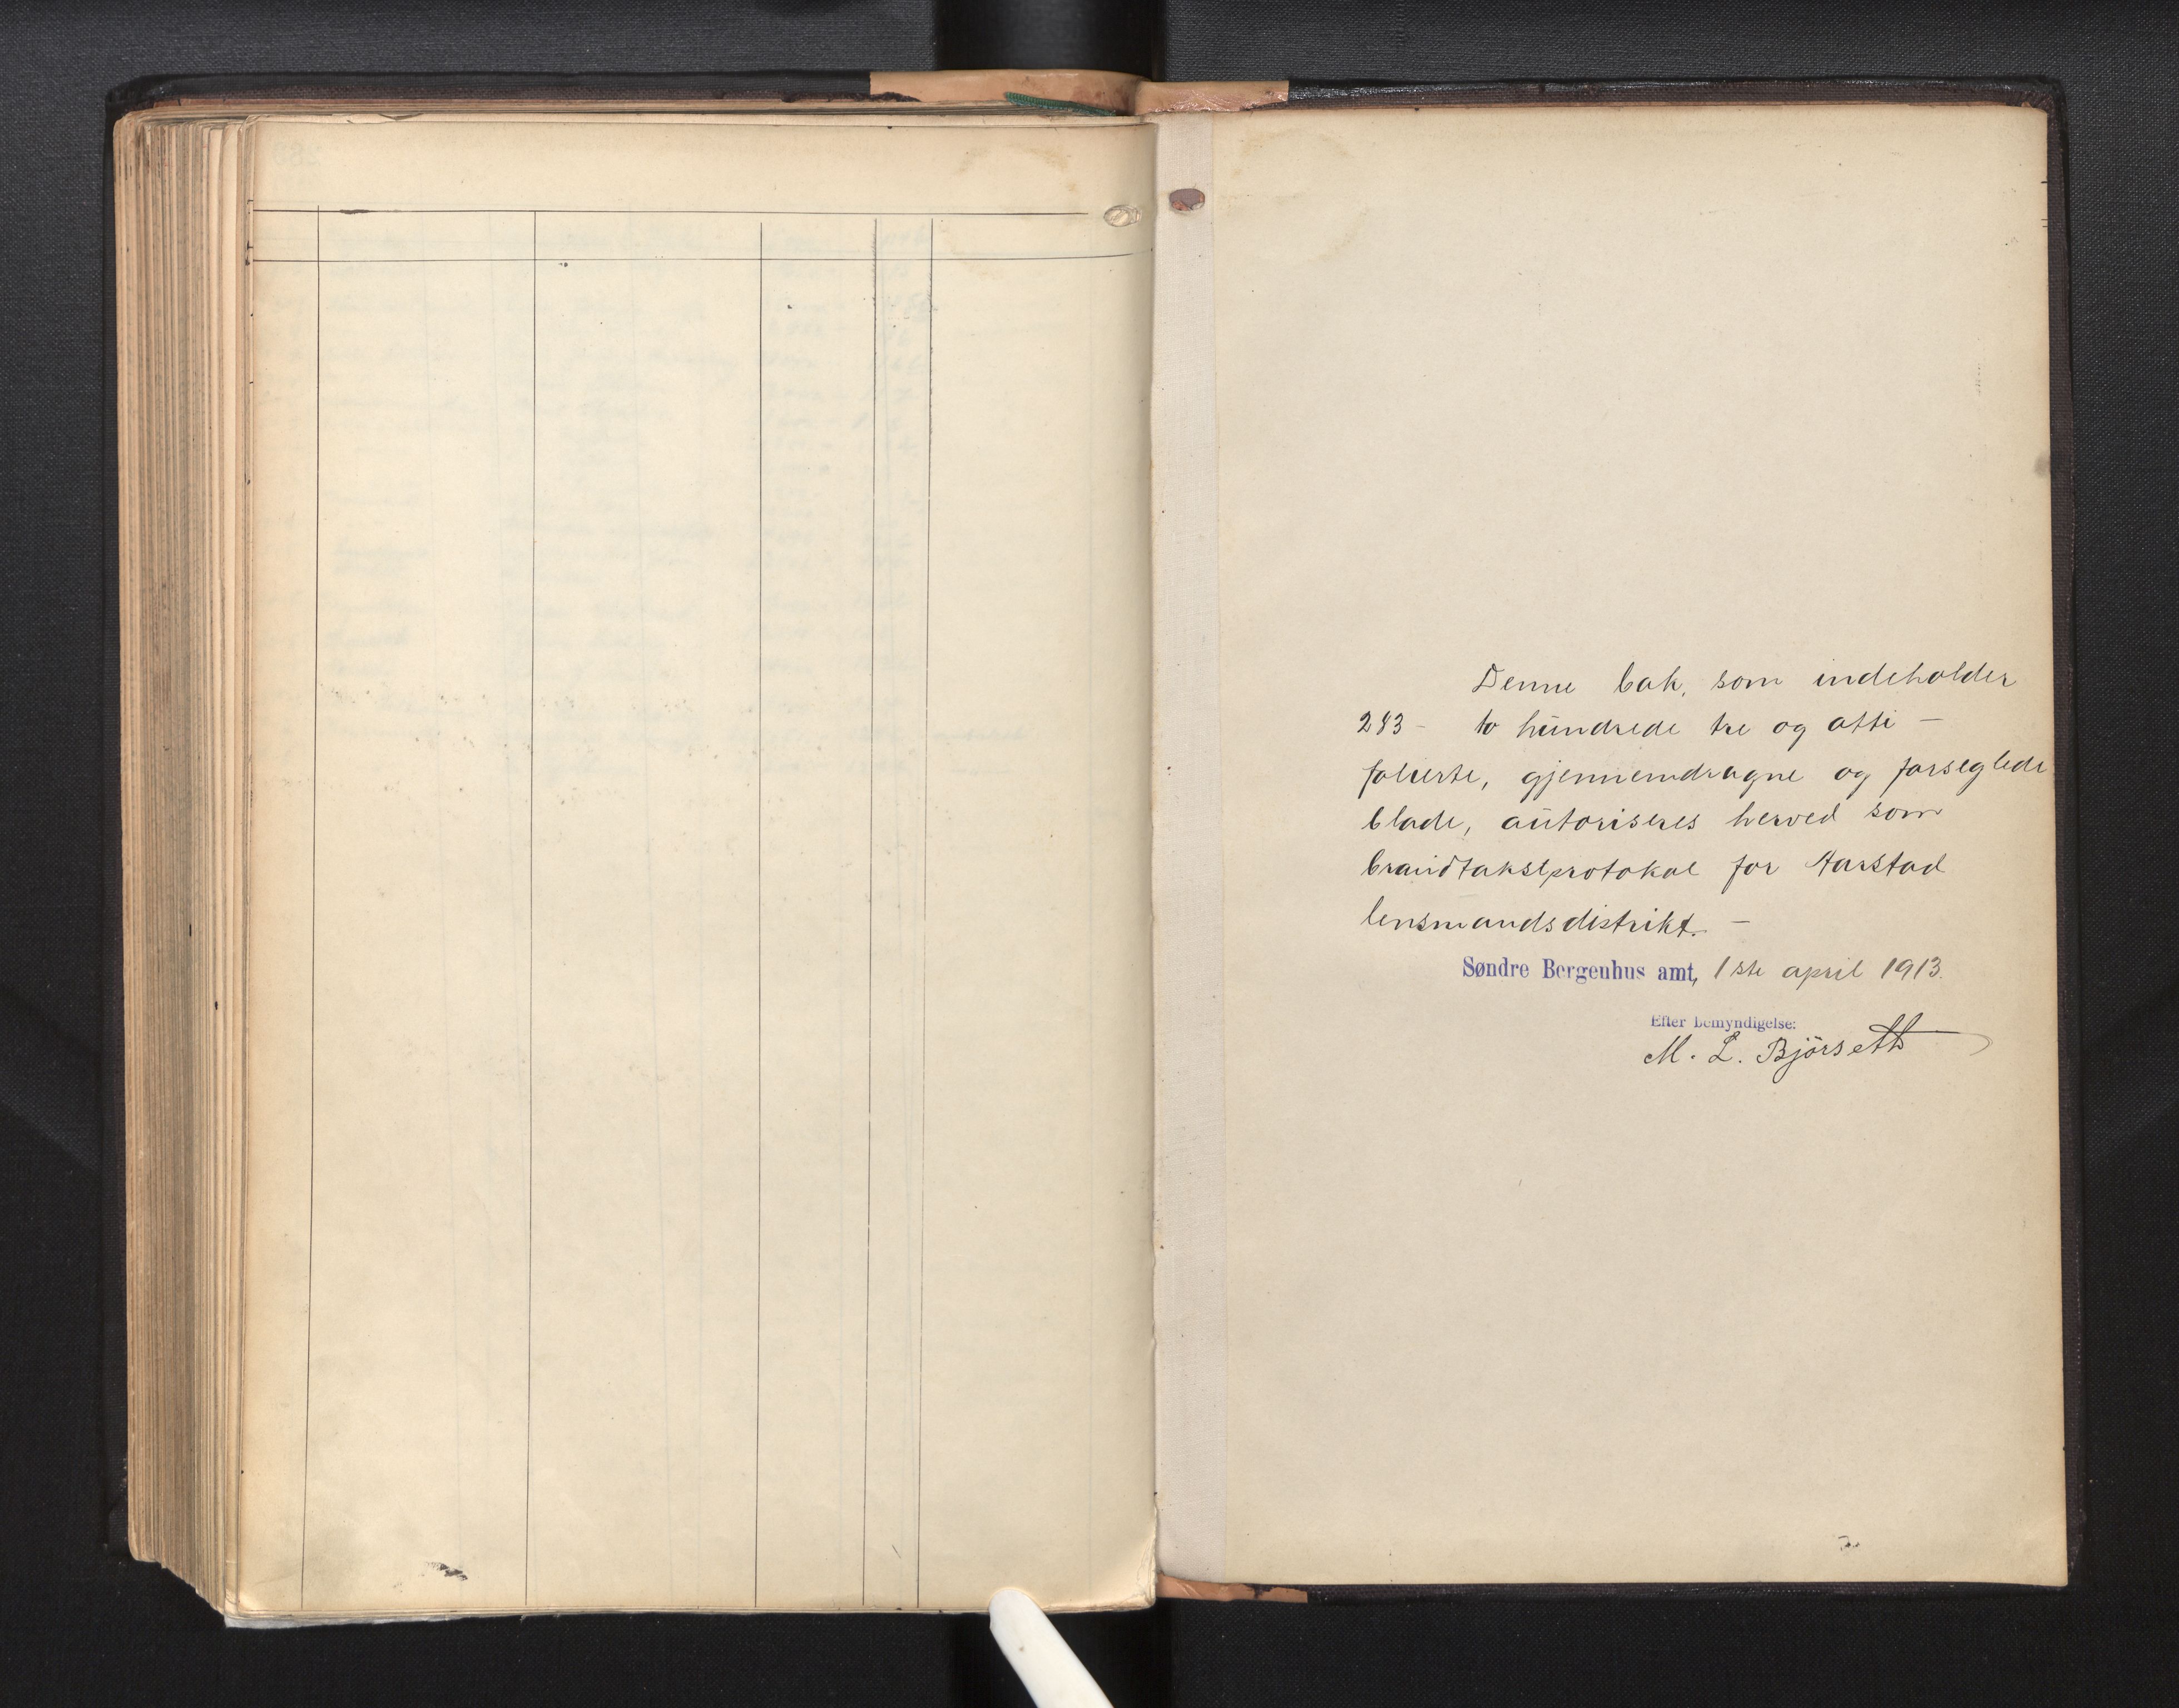 Denne bok, som indeholder
283 - to hundrede tre og otti -
folierte, gjennemdragne og forseglede
blade, autoriseres herved som
brandtakstprotokol for Aarstad
lensmandsdistrikt. -
Søndre Bergenhus amt, 1ste april 1913.
Efter bemyndigelse:
M. L. Björseth